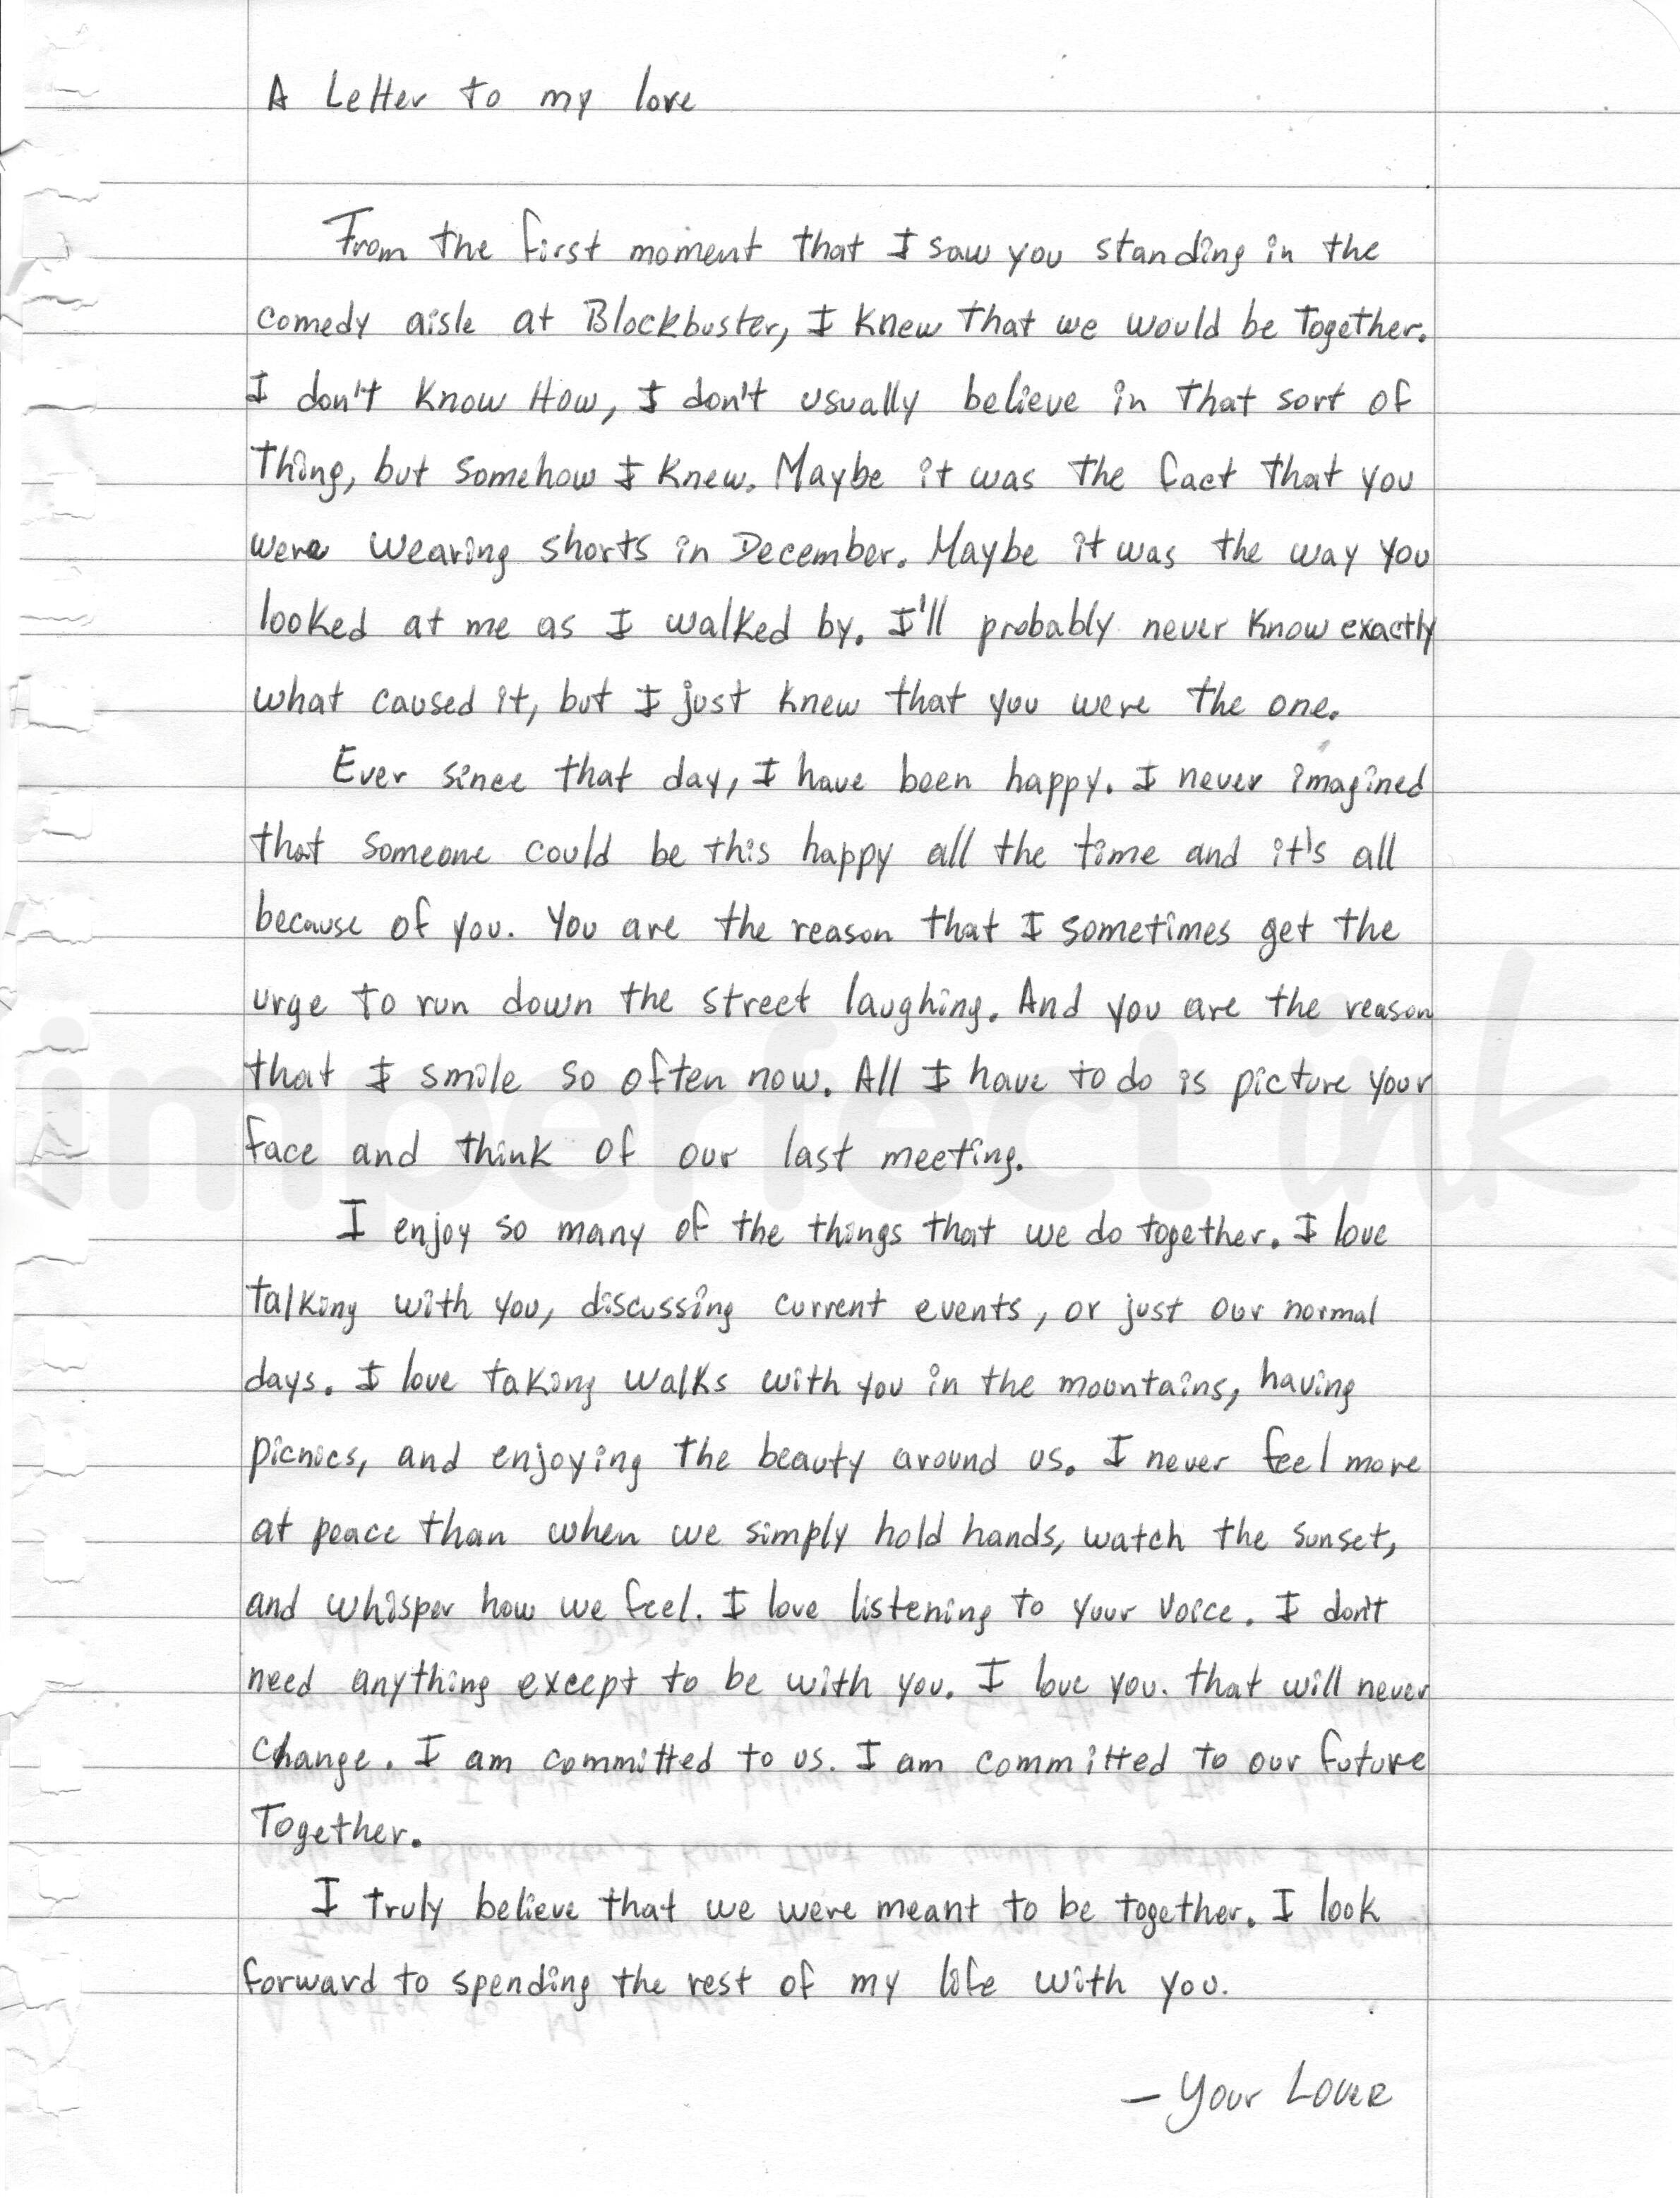 A Letter to my love
From the first moment that I saw you standing in the
comedy aisle at Blockbuster, I knew that we would be together.
I don't know How, I don't usually believe in that sort of
thing, but somehow I knew. Maybe it was the fact that you
were wearing shorts in December. Maybe it was the way you
looked at me as I walked by. I'll probably never know exactly
what caused it, but I just knew that you were the one.
Ever since that day, I have been happy. I never imagined
that someone could be this happy all the time and it's all
because of you. You are the reason that I sometimes get the
urge to run down the street laughing. And you are the reason
that I smile so often now. All I have to do is picture your
face and think of our last meeting.
imperfect ink
I enjoy so many of the things that we do together. I love
talking with you, discussing current events, or just our normal
days. I love taking walks with you in the mountains, having
picnics, and enjoying the beauty around us. I never feel more
at peace than when we simply hold hands, watch the sunset,
and whisper how we feel. I love listening to your voice. I don't
need anything except to be with you. I love you. that will never
change. I am committed to us. I am committed to our future
Together.
I truly believe that we were meant to be together. I look
forward to spending the rest of my life with you.
– Your Lover